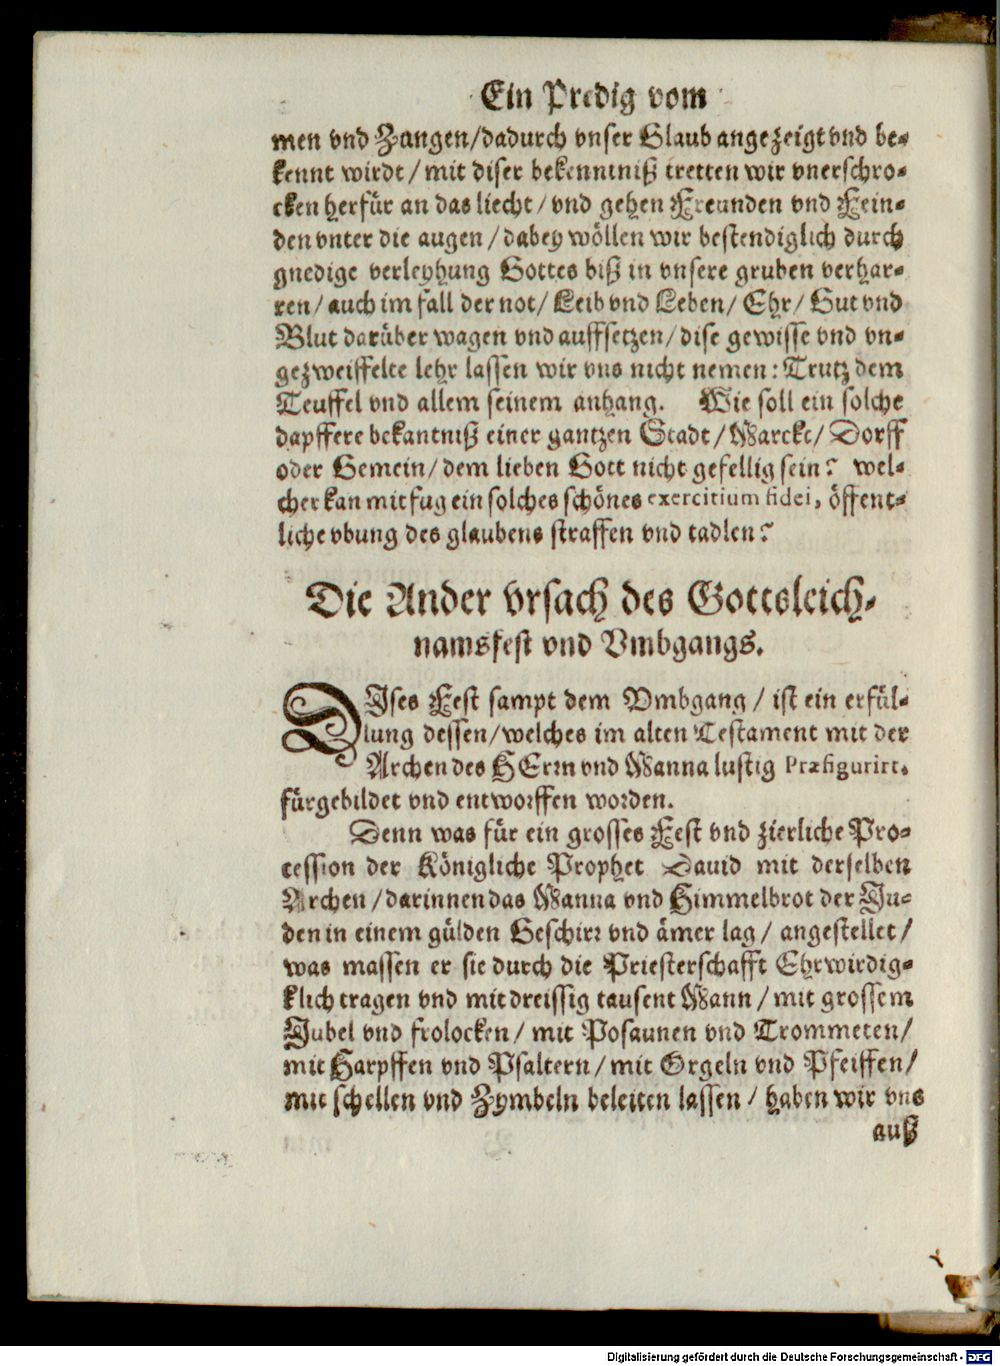 Ein Predig vom
men vnd Zungen/dadurch vnser Glaub angezeigt vnd be-
kennt wirdt/mit diser bekenntniß tretten wir vnerschro-
cken herfür an das liecht/vnd gehen Freunden vnd Fein-
den vnter die augen/dabey wöllen wir bestendiglich durch
gnedige verleyhung Gottes biß in vnsere gruben verhar-
ren/auch im fall der not/Leib vnd Leben/Ehr/Gut vnd
Blut darüber wagen vnd auffsetzen/dise gewisse vnd vn-
gezweiffelte lehr lassen wir vns nicht nemen: Trutz dem
Teuffel vnd allem seinem anhang. Wie soll ein solche
dapffere bekantniß einer gantzen Stadt/Marckt/Dorff
oder Gemein/dem lieben Gott nicht gefellig sein? wel-
cher kan mit fug ein solches schönes exercitium fidei, öffent-
liche vbung des glaubens straffen vnd tadlen?
Die Ander vrsach des Gottsleich-
namsfest vnd Vmbgangs.
DIses Fest sampt dem Vmbgang/ist ein erfül-
lung dessen/welches im alten Testament mit der
Archen des HErrn vnd Manna lustig Præfigurirt,
fürgebildet vnd entworffen worden.
Denn was für ein grosses Fest vnd zierliche Pro-
cession der Königliche Prophet Dauid mit derselben
Archen/darinnen das Manna vnd Himmelbrot der Ju-
den in einem gülden Geschirr vnd ämer lag/angestellet/
was massen er sie durch die Priesterschafft Ehrwirdig-
klich tragen vnd mit dreissig tausent Mann/mit grossem
Jubel vnd frolocken/mit Posaunen vnd Trommeten/
mit Harpffen vnd Psaltern/mit Orgeln vnd Pfeiffen/
mit schellen vnd Zymbeln beleiten lassen/haben wir vns
auß
Digitalisierung gefördert durch die Deutsche Forschungsgemeinschaft - DFG